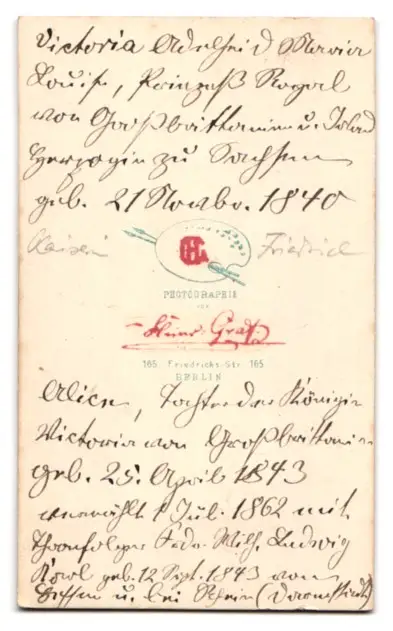 Victoria Adelheid Maria
Louise, Prinzeß Royal
von Großbrittanien u. Irland
Herzogin zu Sachsen
geb. 21 Novbr. 1840
Kaiserin Friedrich
GH
PHOTOGRAPHIE
VON
Heinr. Graf
165 Friedrichs-Str. 165
BERLIN
Alice, Tochter der Königin
Victoria von Großbrittanien
geb. 25. April 1843
vermählt 1 Jul. 1862 mit
Thronfolger Frdr. Wilh. Ludwig
Karl geb. 12 Sept. 1843 von
Hessen u. bei Rhein (Darmstadt)